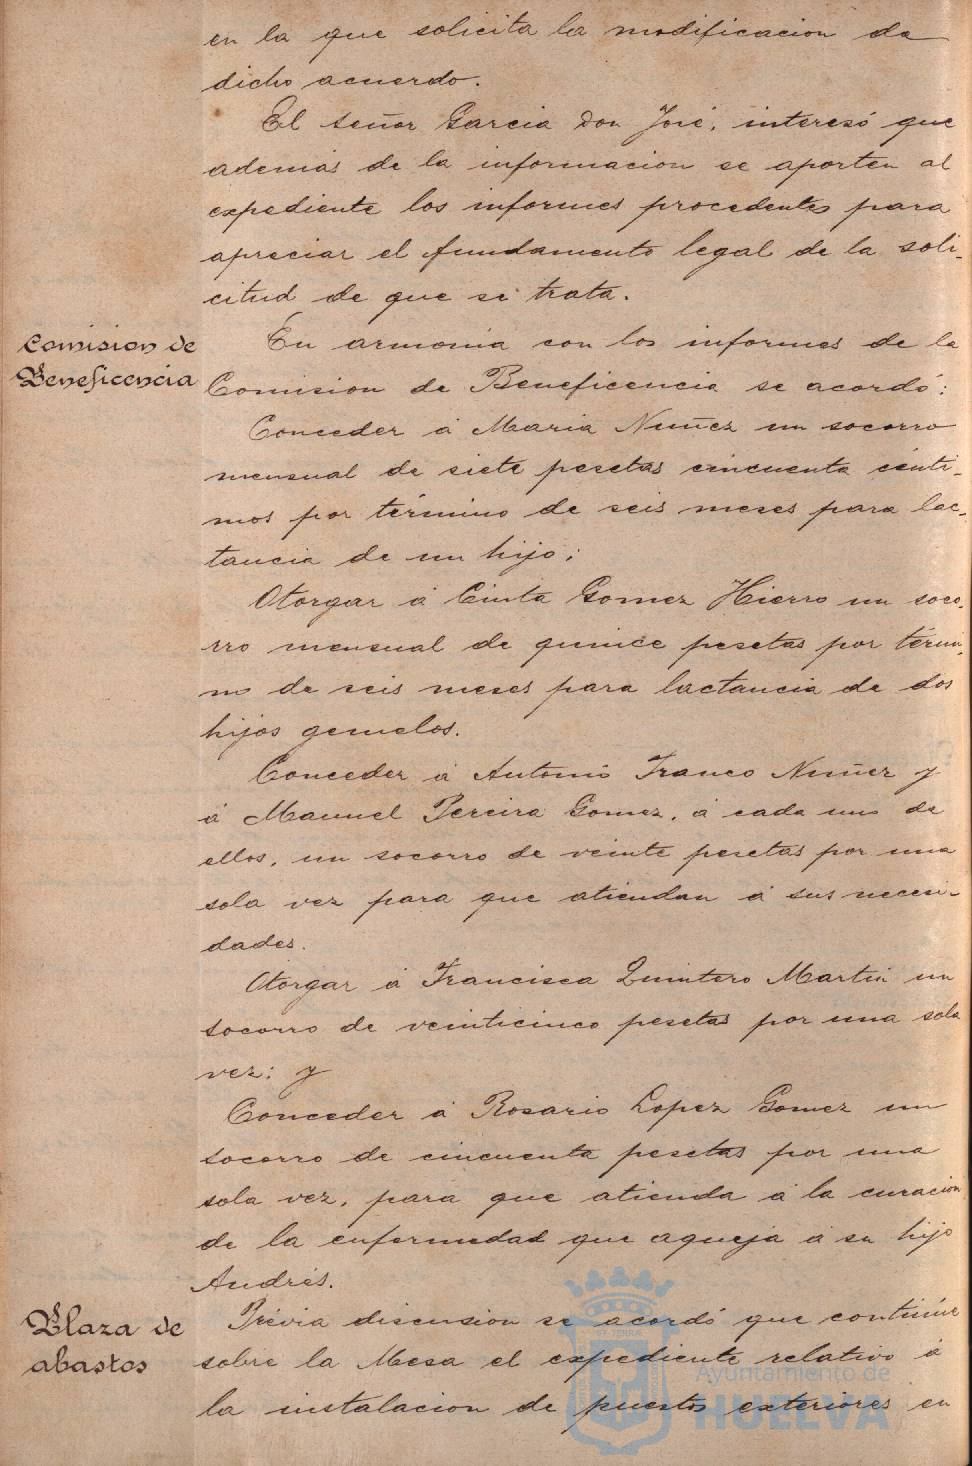 en la que solicita la modificacion de
dicho acuerdo.
El señor Garcia Don José, interesó que
ademas de la informacion se aporten al
expediente los informes procedentes para
apreciar el fundamento legal de la soli-
citud de que se trata.
Comision de
Beneficencia
En armonia con los informes de la
Comision de Beneficencia se acordó:
Conceder á Maria Nuñez un socorro
mensual de siete pesetas cincuenta cénti-
mos por término de seis meses para lac-
tancia de un hijo;
Otorgar á Cinta Gomez Hierro un soco-
rro mensual de quince pesetas por térmi-
no de seis meses para lactancia de dos
hijos gemelos.
Conceder á Antonio Franco Nuñez y
á Manuel Pereira Gomez, á cada uno de
ellos, un socorro de veinte pesetas por una
sola vez para que atiendan á sus necesi-
dades.
Otorgar á Francisca Quintero Martin un
socorro de veinticinco pesetas por una sola
vez; y
Conceder á Rosario Lopez Gomez un
socorro de cincuenta pesetas por una
sola vez, para que atienda á la curación
de la enfermedad que aqueja á su hijo
Andrés.
Plaza de
abastos
Prévia discusion se acordó que continúe
sobre la Mesa el expediente relativo á
la instalacion de puestos exteriores en
Ayuntamiento de
HUELVA